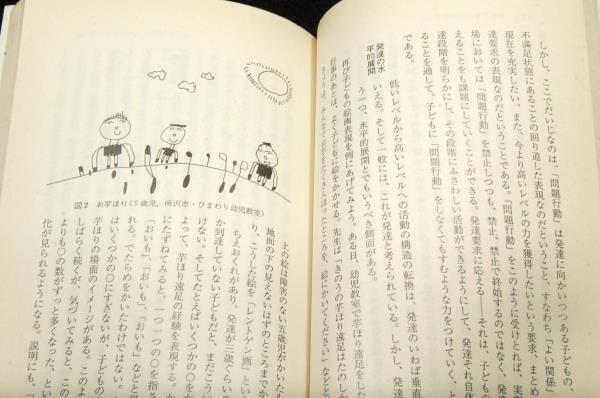 しかし、ここでだいじなのは、「問題行動」は発達に向かいつつある子どもの、
不満足状態にあることの回り道した表現なのだということ、すなわち「よい関係」
現在を充実したい、また、今より高いレベルの力を獲得したいという要求、まとめ
達要求の表現なのだということである。「問題行動」をこのように受けとれば、実
場においては「問題行動」を禁止しつつも、禁止で終始するのではなく、発
えることをも課題にしていくことができる。発達要求に応える——それは、子どもの
達段階を明らかにし、その段階にふさわしい活動ができるようにして、発達それ自体
ることを通して、子どもに「問題行動」をしなくてもすむような力をつけていく、と
である。
発達の水
平的展開
低いレベルから高いレベルへの活動の構造の転換は、発達のいわば垂直
いえる。そして一般には、これが発達と考えられている。しかし、発達
う一つ、水平的展開とでもいうべき側面がある。
再び子どもの絵画表現を例にあげてみよう。ある日、幼児教室で芋ほり遠足をした
行事のあとは、よく子どもに絵をかかせる。先生は「きのうの芋ほり遠足はたのしか
図2 お芋ほり(5歳児、所沢市・ひまわり幼児教室)
上の絵は障害のない五歳児がかいた
地面の下の見えないはずのところまでか
り、こうした絵を「レントゲン画」とい
ちえおくれがあり、発達が三歳ぐらい
か到達していない子どもだと、まだこう
けない。そしてたとえばいくつかの〇を
よって、芋ほり遠足の経験を表現する。
にたずねてみると、一つ一つの〇を指さ
「おいも」、「おいも」、「おいも」などと
れる。でたらめをかいたわけではない。
はいくつかの〇にすぎないが、子どもの
芋ほりの場面のイメージがある。このよ
しばらく続くが、気づいてみると、この
よりも〇の数がずっと多くなった、とい
化が見られるようになる。説明にも、「